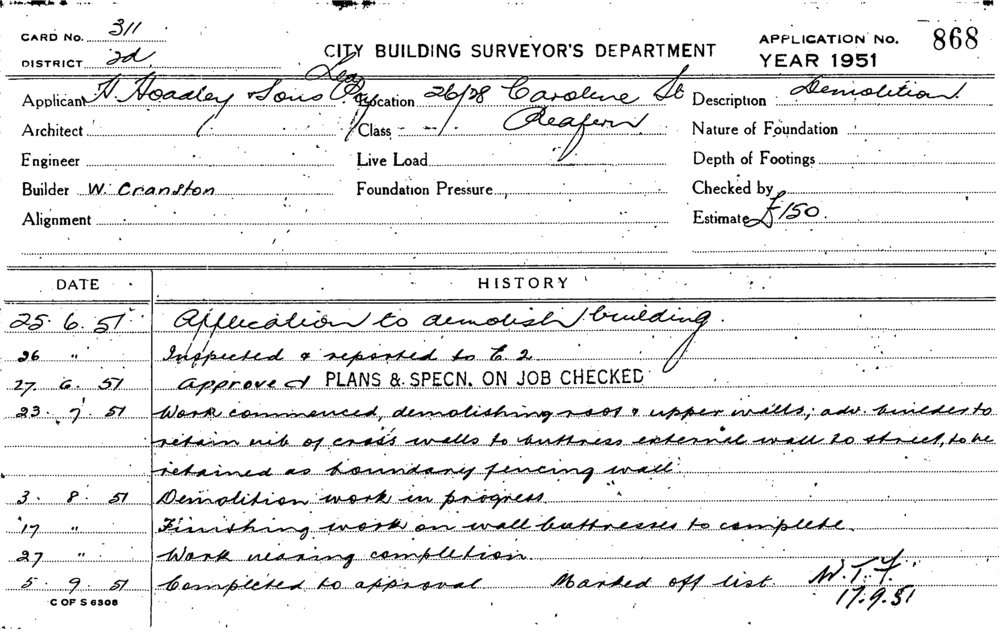 CARD No. 311
DISTRICT 2d
CITY BUILDING SURVEYOR'S DEPARTMENT
APPLICATION No. 868
YEAR 1951
Applicant H. Hoadley & Sons Location 26/28 Caroline St Description Demolition.
Redfern
Architect Class Nature of Foundation
Engineer Live Load Depth of Footings
Builder W. Cranston Foundation Pressure Checked by
Alignment Estimate £150.
DATE HISTORY
25. 6. 51 Application to demolish building.
26 " Inspected & reported to C. 2.
27. 6. 51 Approved PLANS & SPECN. ON JOB CHECKED
23. 7. 51 Work commenced, demolishing roof & upper walls; adv. builder to
retain nib of cross walls to buttress external wall to street, to be
retained as boundary fencing wall.
3. 8. 51 Demolition work in progress.
17 " Finishing work on wall buttresses to complete.
27 " Work nearing completion.
5. 9. 51 Completed to approval Marked off list W.T.F.
17.9.51
C OF S 6308